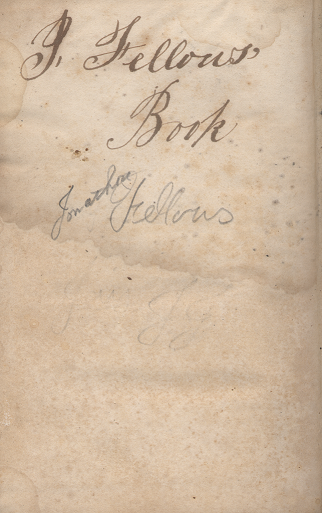 J. Fellows
Book
Jonathan Fellows